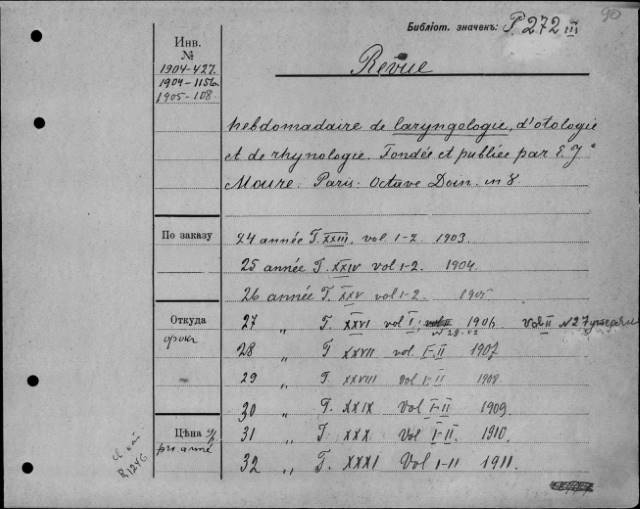 90
Библіот. значекъ: P 272 III
Инв. №
1904-427.
1904-1156
1905-108
Revue
hebdomadaire de laryngologie, d'otologie
et de rhynologie. Fondée et publiée par E. J.
Moure. Paris. Octave Doin. in 8.
По заказу
24 année T. XXIII. vol 1-2 1903.
25 année T. XXIV vol 1-2. 1904.
26 année T. XXV vol 1-2. 1905
Откуда
27 " T. XXVI vol I; 1906 Vol II N 27
28 " T. XXVII vol I-II 1907
29 " T. XXVIII vol I-II 1908
30 " T. XXIX Vol I-II 1909
Цѣна
31 " T. XXX Vol I-II 1910.
32 " T. XXXI Vol I-II 1911.